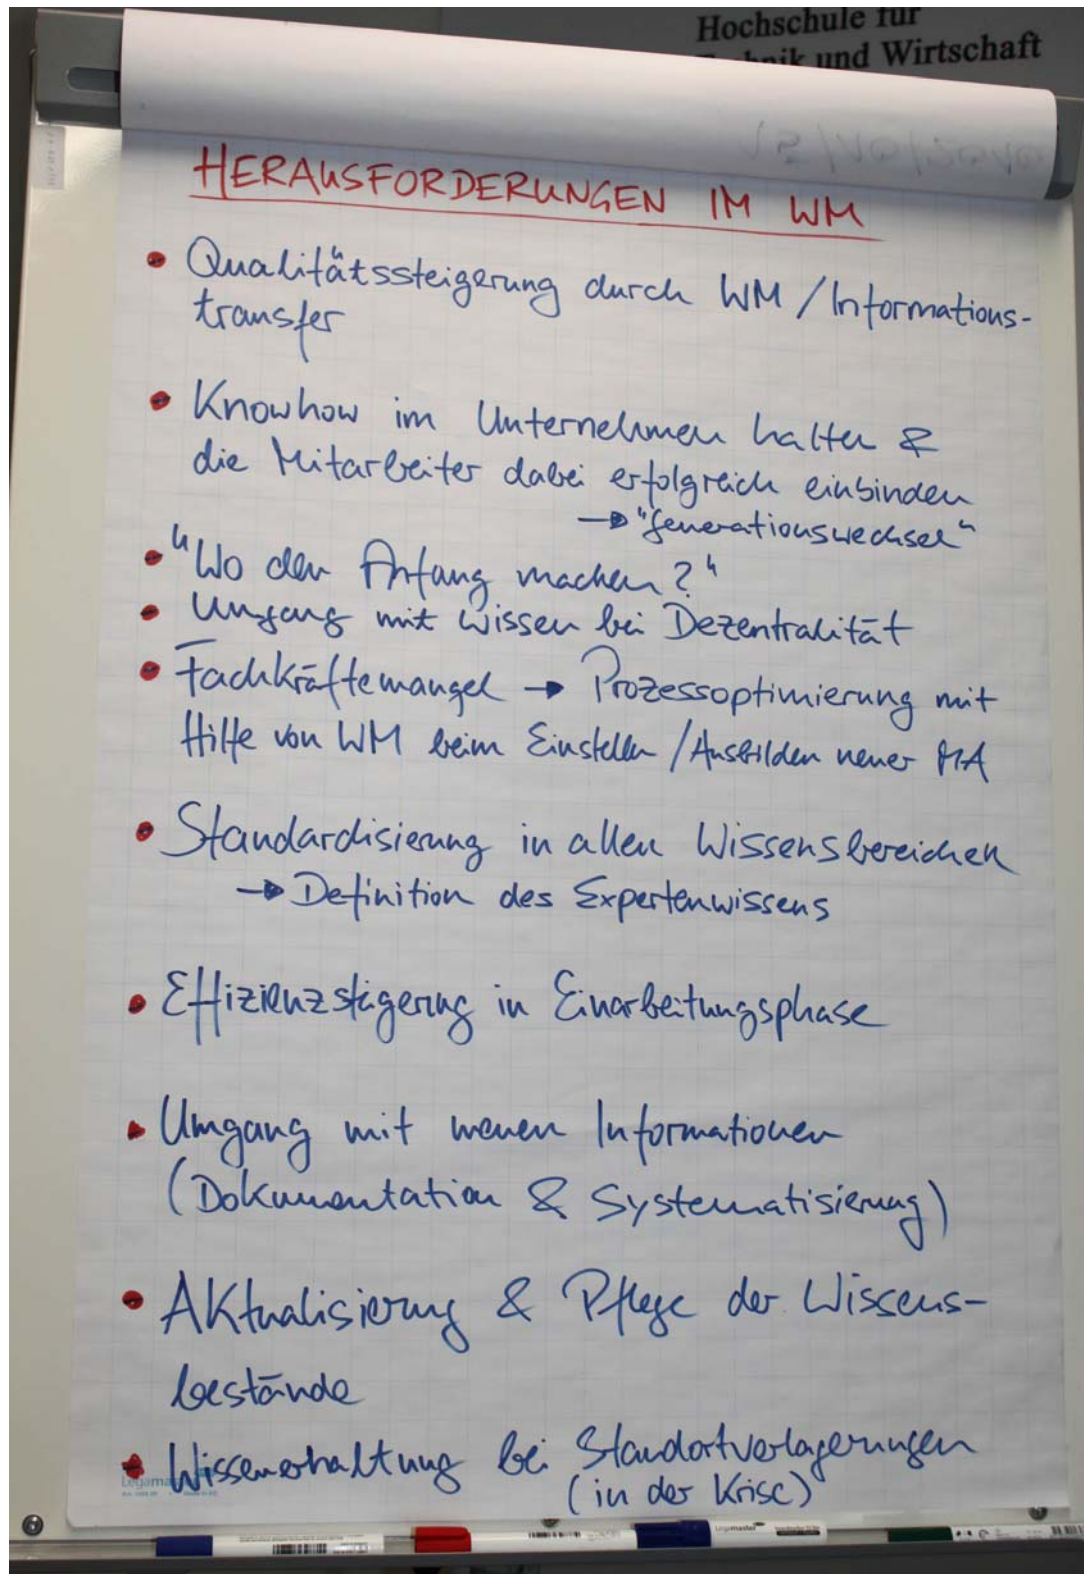 Hochschule für
und Wirtschaft
HERAUSFORDERUNGEN IM WM
• Qualitätssteigerung durch WM / Informations-
transfer
• Knowhow im Unternehmen halten &
die Mitarbeiter dabei erfolgreich einbinden
→ "Generationswechsel"
• "Wo den Anfang machen?"
• Umgang mit Wissen bei Dezentralität
• Fachkräftemangel → Prozessoptimierung mit
Hilfe von WM beim Einstellen / Ausbilden neuer MA
• Standardisierung in allen Wissensbereichen
→ Definition des Expertenwissens
• Effizienzsteigerung in Einarbeitungsphase
• Umgang mit neuen Informationen
(Dokumentation & Systematisierung)
• Aktualisierung & Pflege der Wissens-
bestände
• Wissenserhaltung bei Standortverlagerungen
(in der Krise)
Legamaster